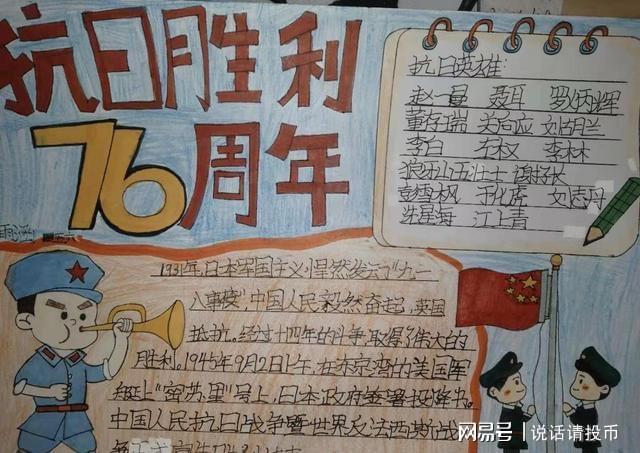 抗日胜利
76周年
抗日英雄:
赵一曼 聂耳 罗炳辉
董存瑞 关向应 刘胡兰
李白 左权 李林
狼牙山五壮士 谢晋元
彭雪枫 王化虎 刘志丹
冼星海 江上青
1931年,日本军国主义悍然发动了"九一
八事变",中国人民毅然奋起,英国
抵抗。经过十四年的斗争,取得了伟大的
胜利。1945年9月2日上午,在东京湾的美国军
舰"密苏里"号上,日本政府签署投降书。
中国人民抗日战争暨世界反法西斯战
网易号 | 说话请投币